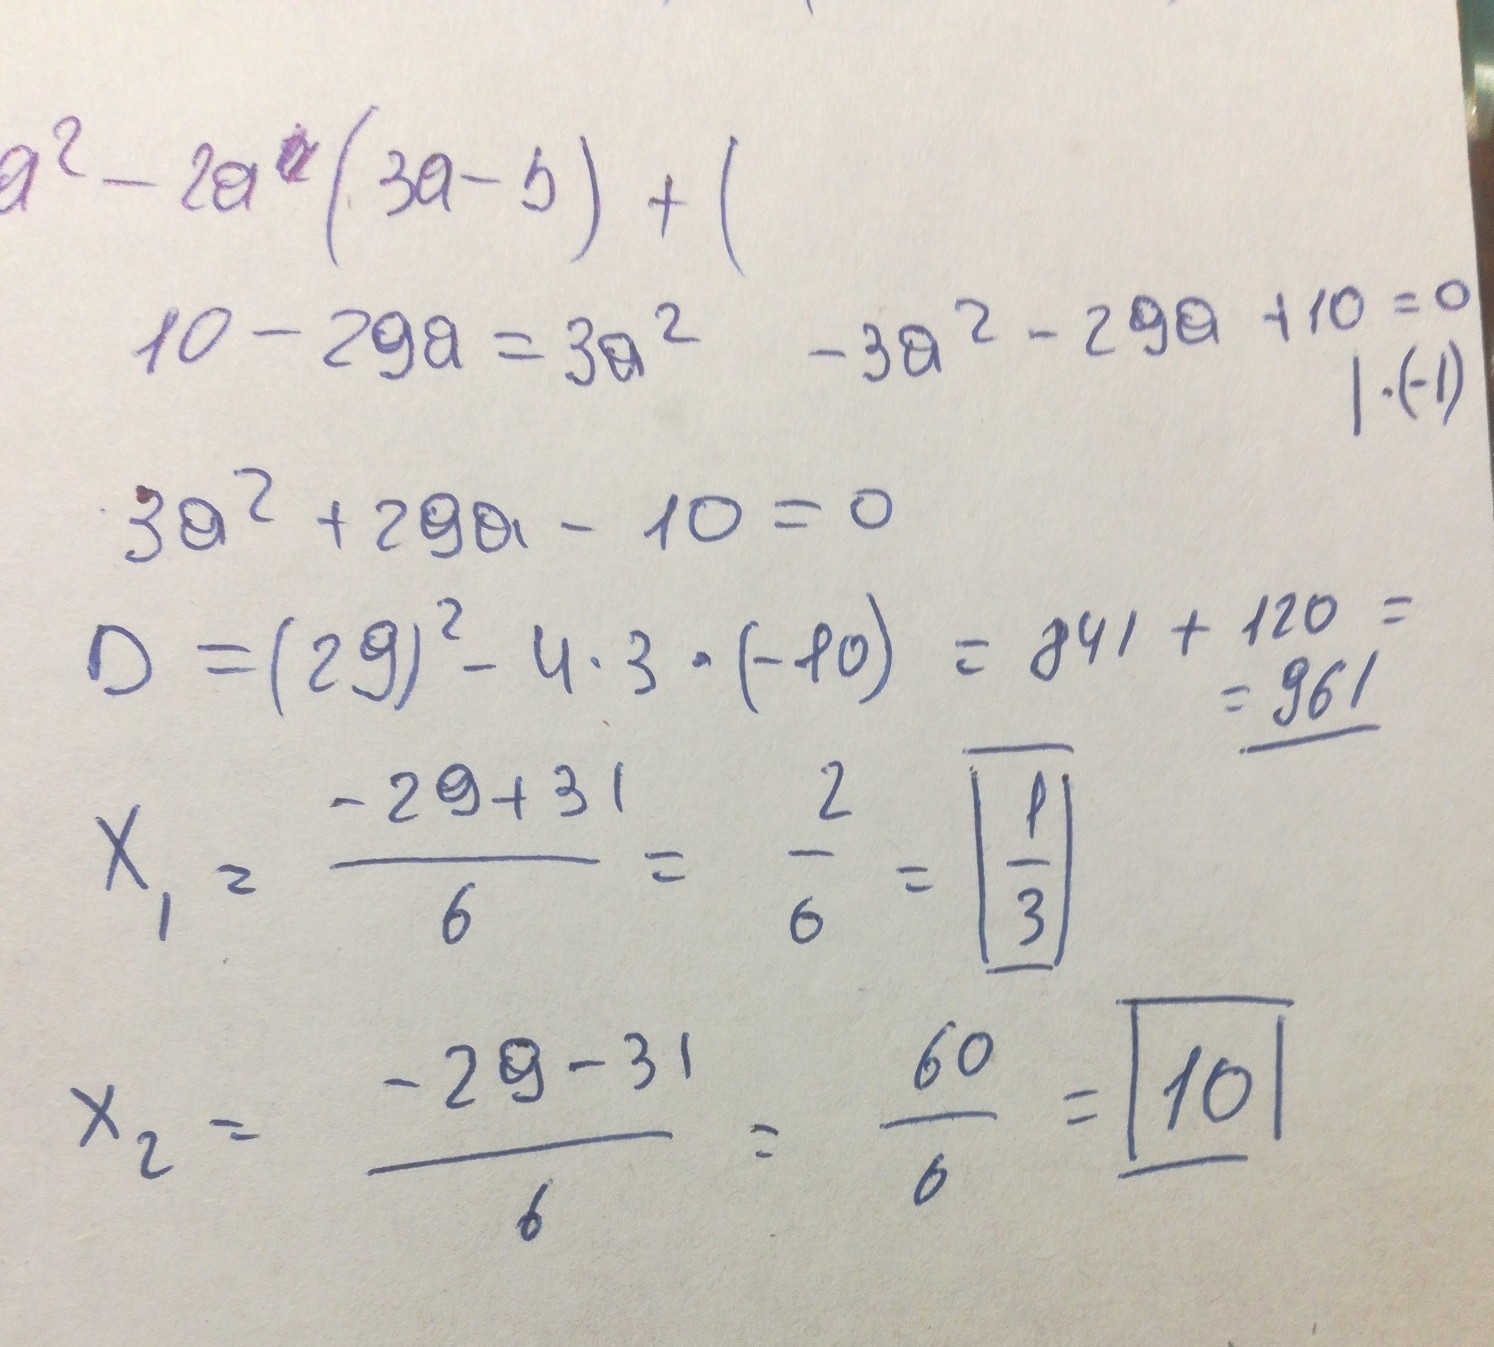 a² - 2a (3a - 5) + (
10 - 29a = 3a² -3a² - 29a + 10 = 0
| · (-1)
3a² + 29a - 10 = 0
D = (29)² - 4 · 3 · (-10) = 841 + 120 =
= 961
X₁ = (-29 + 31)/6 = 2/6 = 1/3
X₂ = (-29 - 31)/6 = 60/6 = 10